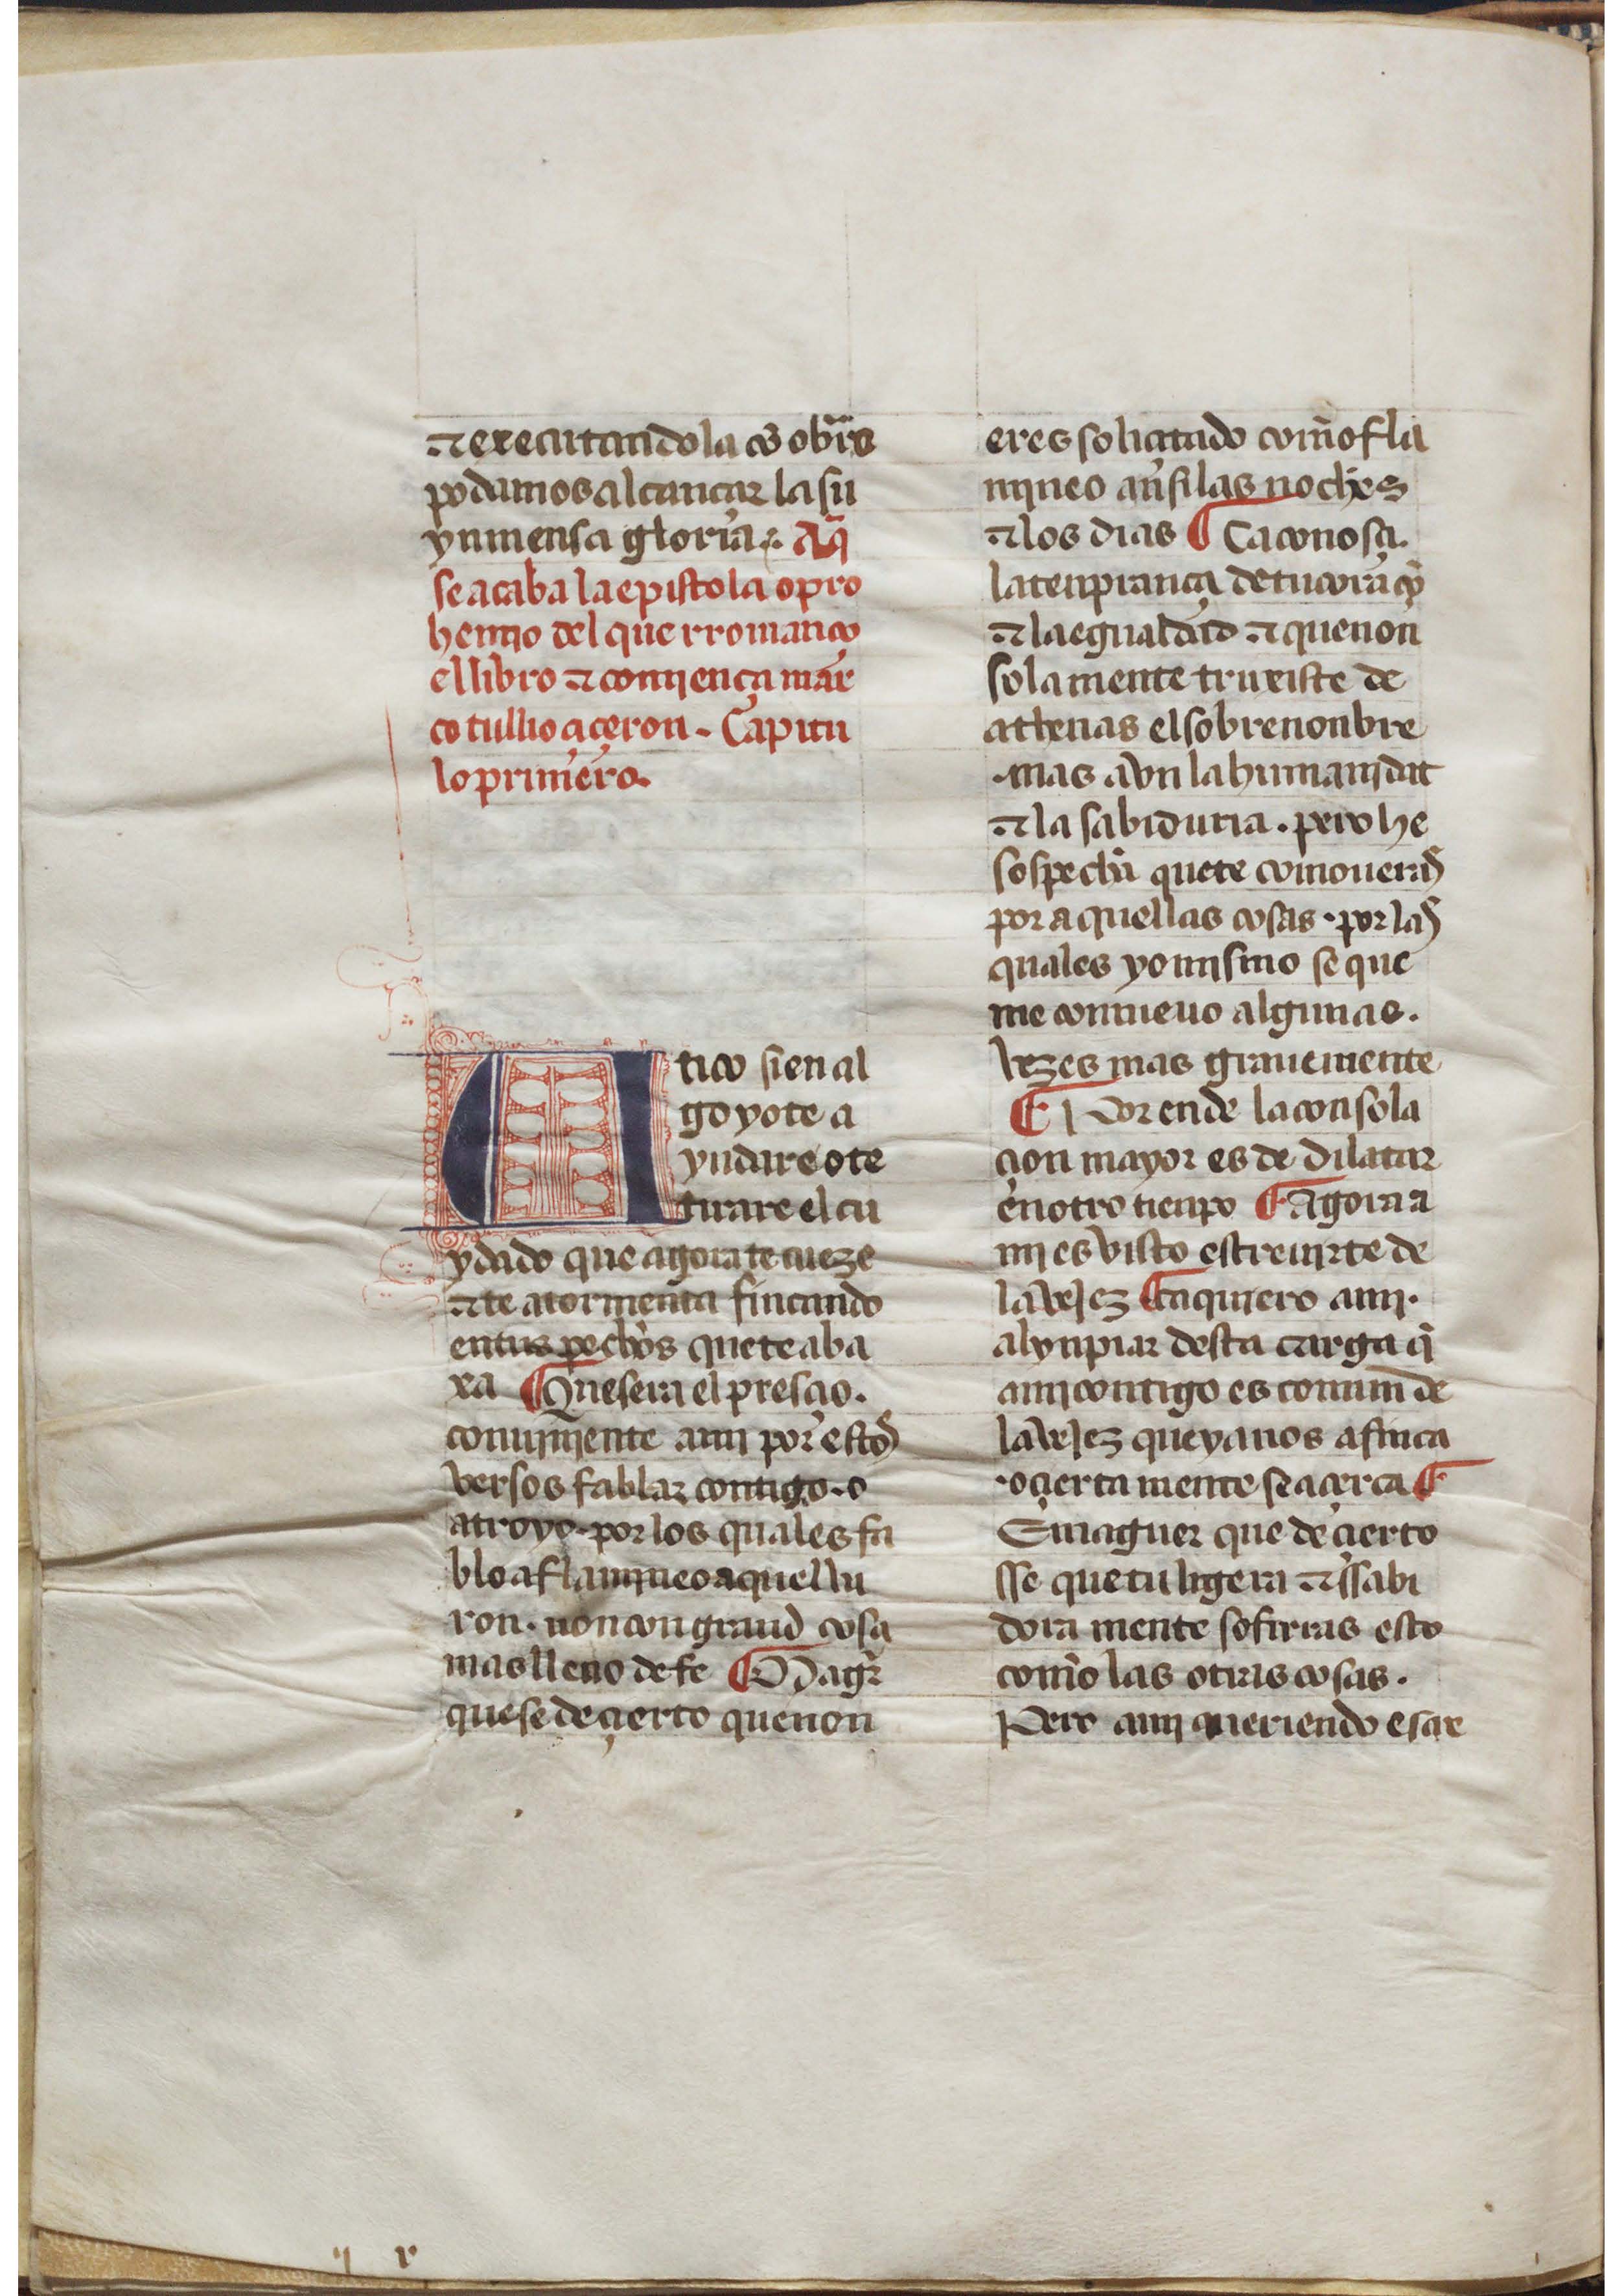 ⁊ executandola cõ obras
podamos alcançar la su
ynmensa gloria. Aq̃
se acaba la epistola o pro
hemio del que rromanço
el libro ⁊ comiença mar
co tullio çiçeron. Capitu
lo primero.
Atico si en al
go yo te a
yudare o te
tirare el cu
ydado que agora te cueze
⁊ te atormenta fincando
en tus pechos que te aba
xa ¶ Que sera el presçio.
conuiniente a mi por estos
versos fablar contigo. o
atroyo. por los quales fa
blo a flamineo aquel ua
ron. non con grand cosa
mas lleno de fe ¶ Magr̃
que se de çierto que non
eres soliçitado com̃o fla
mineo añsi las noches
⁊ los dias ¶ Ca conosci.
la tenprança de tu coraçõ
⁊ la egualdad ⁊ que non
sola mente truxiste de
athenas el sobrenonbre
.mas avn la humanidat
⁊ la sabiduria. pero he
sospecha que te comoueras
por aquellas cosas. por las
quales yo mismo se que
me conmueuo algunas.
vezes mas grauemente
¶ Por ende la consola
çion mayor es de dilatar
en otro tienpo ¶ Agora a
mi es visto escreuirte de
la vejez ¶ Ca quiero a mi.
alynpiar desta carga q̃
a mi contigo es comun de
la vejez que ya nos afinca
.o çierta mente se açerca ¶
E maguer que de çierto
sse que tu ligera ⁊ ssabi
dora mente sofriras esto
com̃o las otras cosas.
Pero a mi queriendo escre